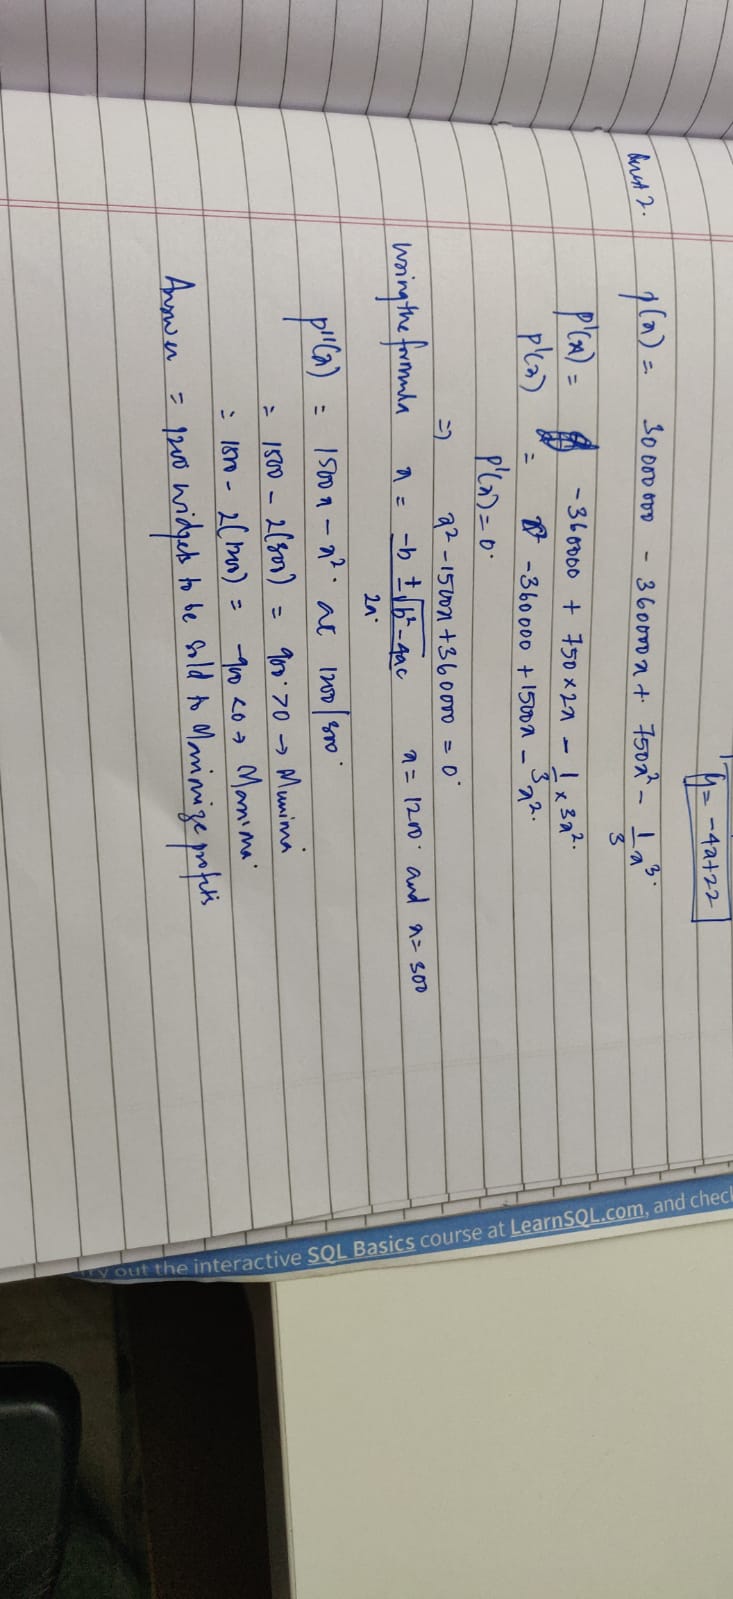 y = -4x+22
Quest 2. p(x) = 30000000 - 360000x + 750x² - 1/3 x³.
P'(x) = -360000 + 750×2x - 1/3 × 3x².
P'(x) = -360000 + 1500x - x².
P'(x) = 0.
=) x² - 1500x + 360000 = 0.
Using the formula x = -b ± √b² - 4ac / 2a. x = 1200. and x = 300
p''(x) = 1500x - x². at 1200/300.
= 1500 - 2(300) = 900. >0 → Minima
= 1500 - 2(1200) = -900 <0 → Maxima.
Answer = 1200 widgets to be sold to Maximize profits
try out the interactive SQL Basics course at LearnSQL.com, and check